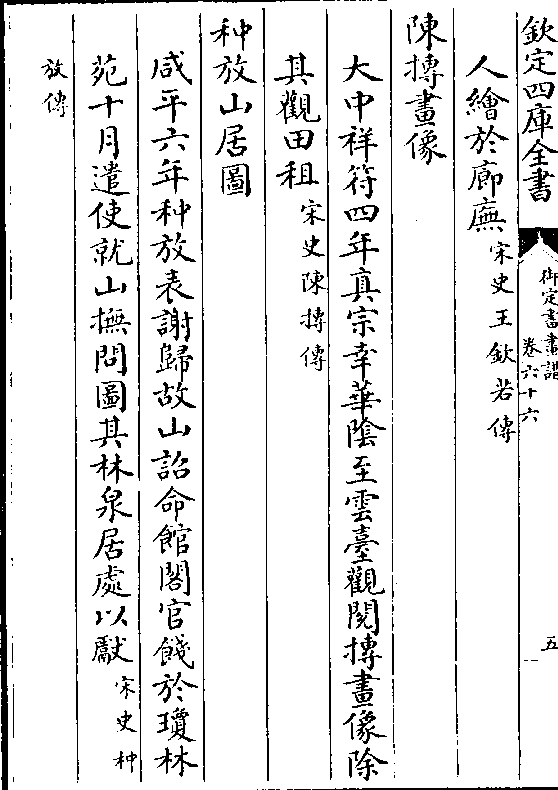 欽定四庫全書
御定書畫譜
卷六十六
五
人繪於廊廡宋史王欽若傳
陳摶畫像
大中祥符四年真宗幸華陰至雲臺觀閱摶畫像除
其觀田租宋史陳摶傳
种放山居圖
咸平六年种放表謝歸故山詔命館閣官餞於瓊林
苑十月遣使就山撫問圖其林泉居處以獻宋史种
放傳